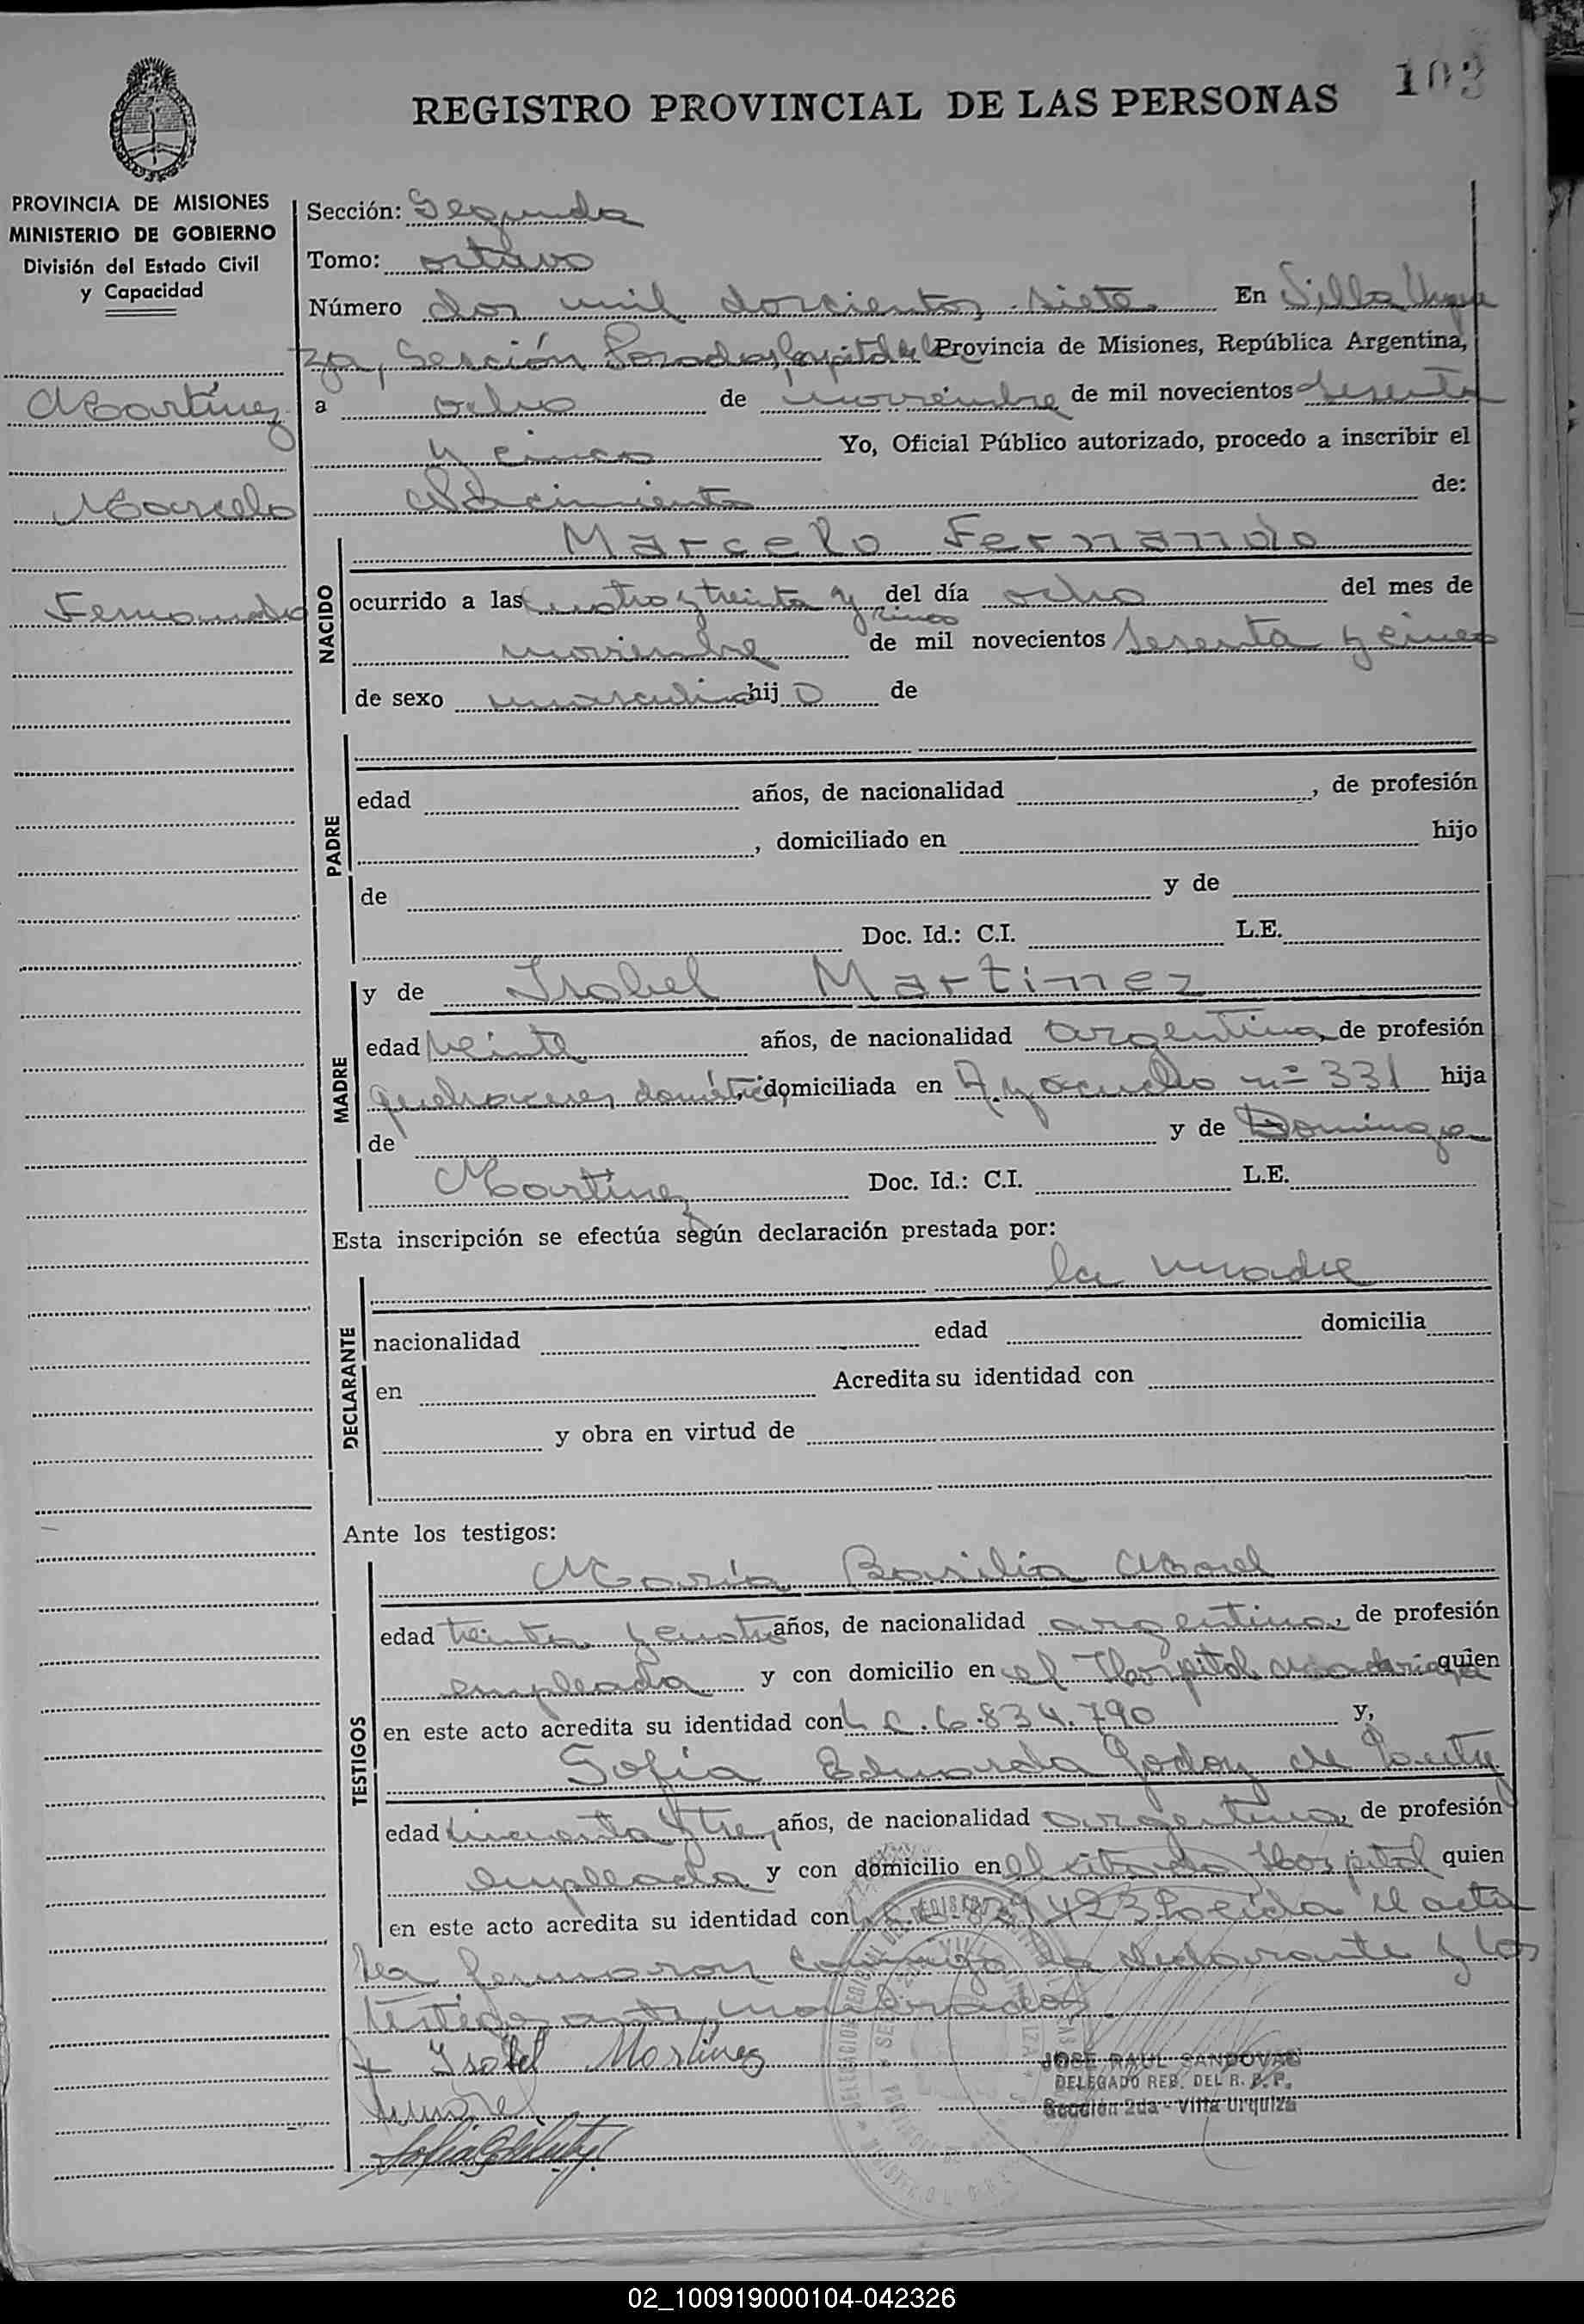 103
REGISTRO PROVINCIAL DE LAS PERSONAS
PROVINCIA DE MISIONES
MINISTERIO DE GOBIERNO
División del Estado Civil
y Capacidad
Martínez
Marcelo
Fernando
Sección: Segunda
Tomo: octavo
Número dos mil doscientos siete En Villa Urqui
za, Sección Posadas, Capital de la Provincia de Misiones, República Argentina,
a ocho de noviembre de mil novecientos sesenta
y cinco Yo, Oficial Público autorizado, procedo a inscribir el
Nacimiento de:
NACIDO
Marcelo Fernando
ocurrido a las cuatro y treinta y cinco del día ocho del mes de
noviembre de mil novecientos sesenta y cinco
de sexo masculino hijo de
PADRE
edad años, de nacionalidad , de profesión
, domiciliado en hijo
de y de
Doc. Id.: C.I. L.E.
MADRE
y de Isabel Martinez
edad veinte años, de nacionalidad argentina, de profesión
quehaceres domésticos, domiciliada en Ayacucho nº 331 hija
de y de Dominga
Martínez Doc. Id.: C.I. L.E.
Esta inscripción se efectúa según declaración prestada por:
DECLARANTE
la madre
nacionalidad edad domicilia
en Acredita su identidad con
y obra en virtud de
Ante los testigos:
TESTIGOS
María Basilia Morel
edad treinta y cuatro años, de nacionalidad argentina, de profesión
empleada y con domicilio en el Hospital Madariaga quien
en este acto acredita su identidad con L.C.6.834.790 y,
Sofía Eduarda Godoy de
edad cincuenta y tres años, de nacionalidad argentina, de profesión
empleada y con domicilio en el citado Hospital quien
en este acto acredita su identidad con Leída el acta
la firmaron conmigo la declarante y los
testigos antes nombrados.
Isabel Martinez
JOSE RAUL SANDOVAL
DELEGADO REG. DEL R. P. P.
Sección 2da - Villa Urquiza
02_100919000104-042326